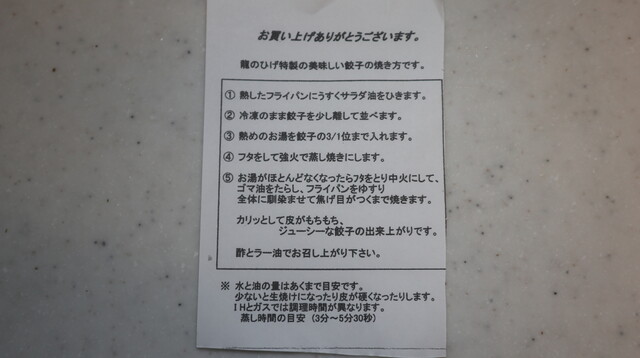 お買い上げありがとうございます。
龍のひげ特製の美味しい餃子の焼き方です。
① 熱したフライパンにうすくサラダ油をひきます。
② 冷凍のまま餃子を少し離して並べます。
③ 熱めのお湯を餃子の3/1位まで入れます。
④ フタをして強火で蒸し焼きにします。
⑤ お湯がほとんどなくなったらフタをとり中火にして、
ゴマ油をたらし、フライパンをゆすり
全体に馴染ませて焦げ目がつくまで焼きます。
カリッとして皮がもちもち、
ジューシーな餃子の出来上がりです。
酢とラー油でお召し上がり下さい。
※ 水と油の量はあくまで目安です。
少ないと生焼けになったり皮が硬くなったりします。
IHとガスでは調理時間が異なります。
蒸し時間の目安 (3分～5分30秒)